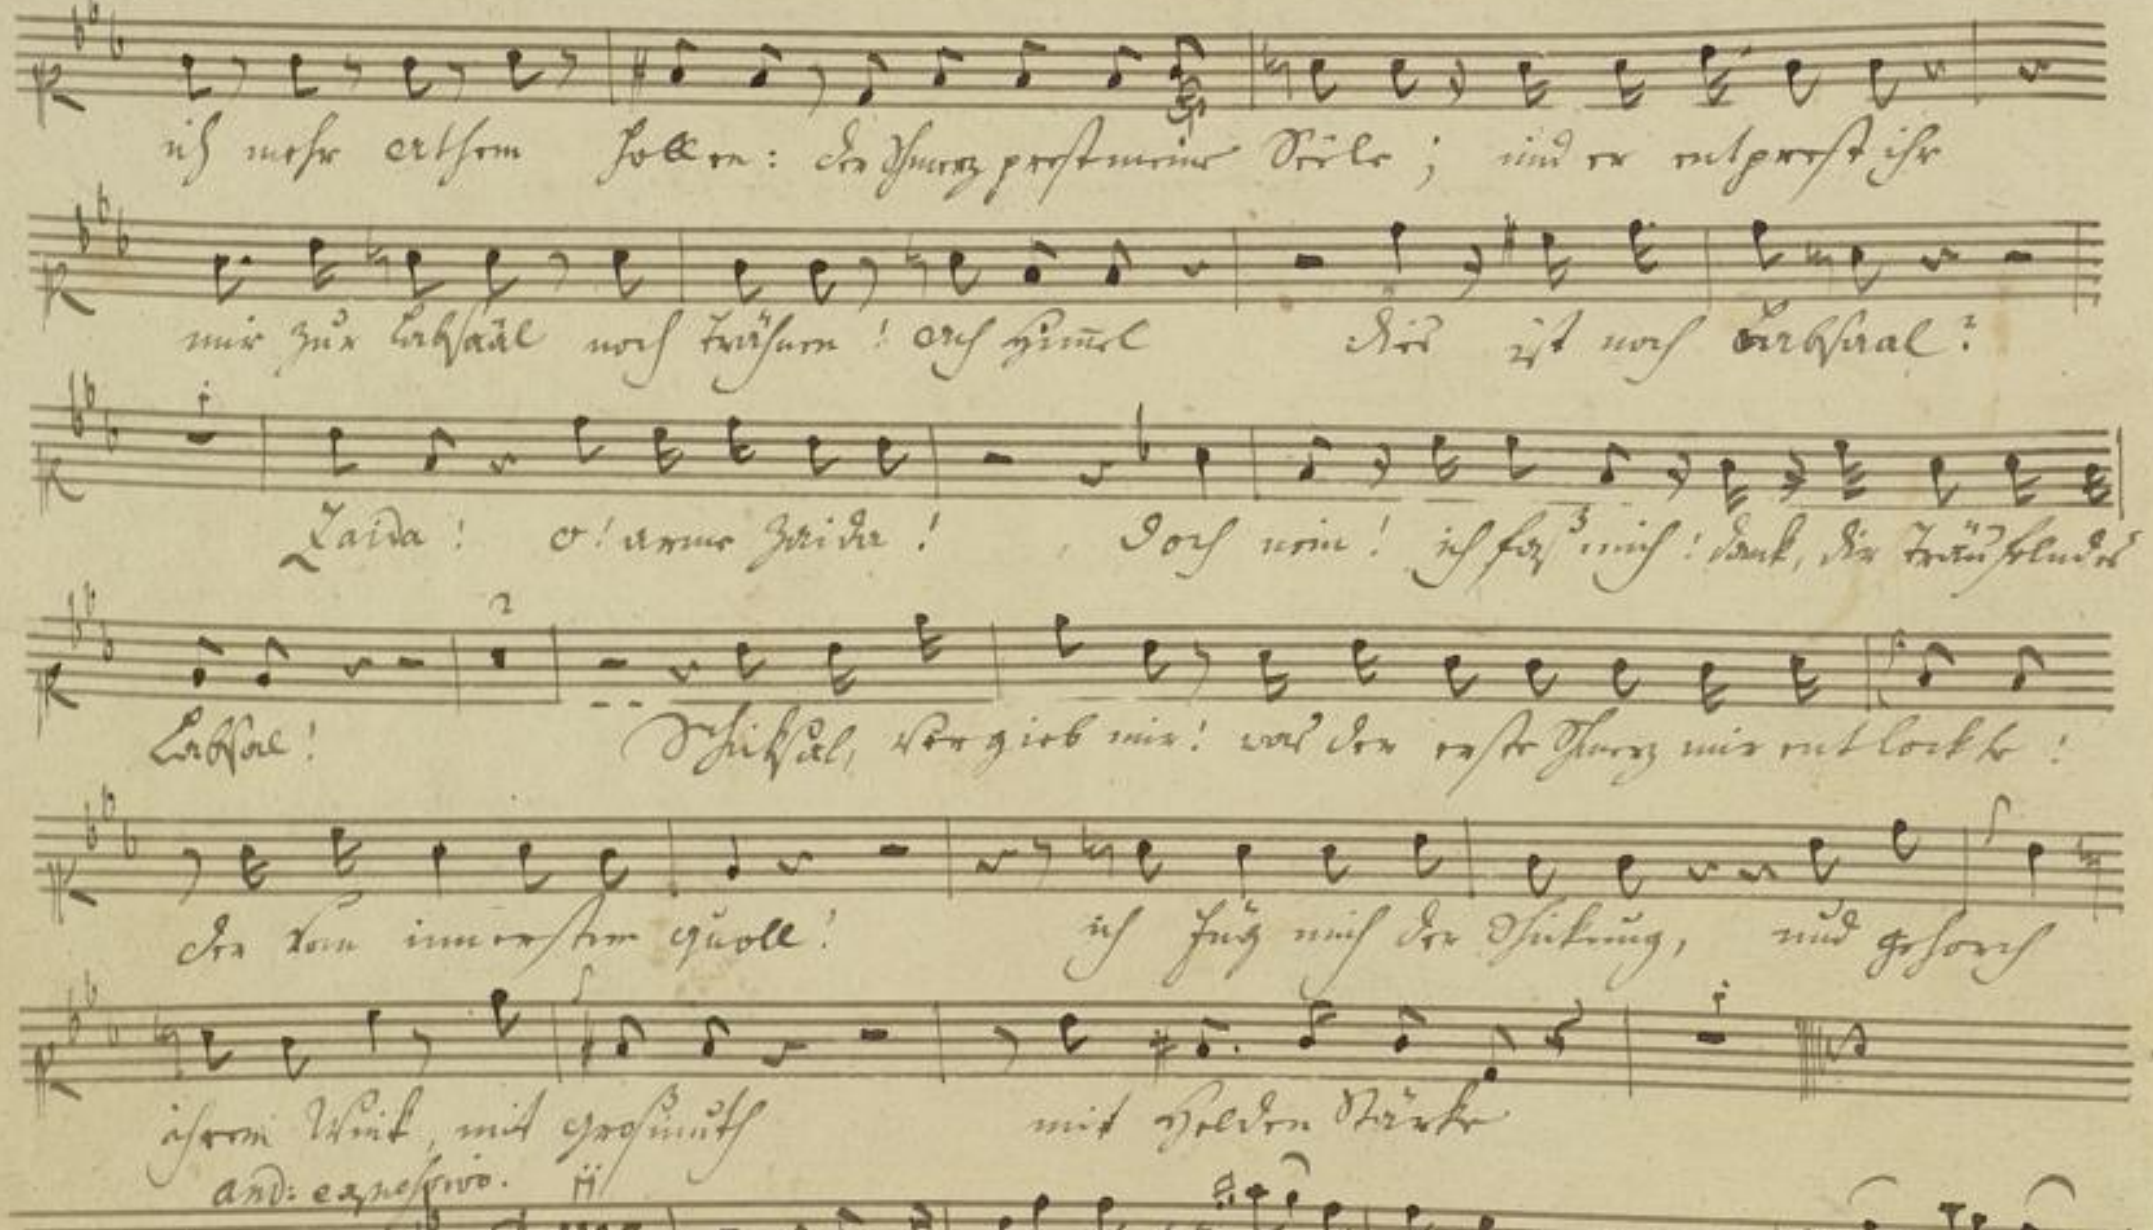 ich mehr athem hollen: der Schmerz prest meine Seele; und er entprest ihr
mir zur Labsaal noch Trähnen! ach Himmel dies ist noch Labsaal?
Zaida! o! arme Zaida! doch nein! ich fass mich! dank, dir träufelndes
Labsal! Schiksal, vergieb mir! was der erste Schmerz mir entlockte!
der vom innersten quoll! ich füg mich der Schikung, und gehorch
ihrem Wink, mit grosmuth mit Helden Stärke
and: espressivo.